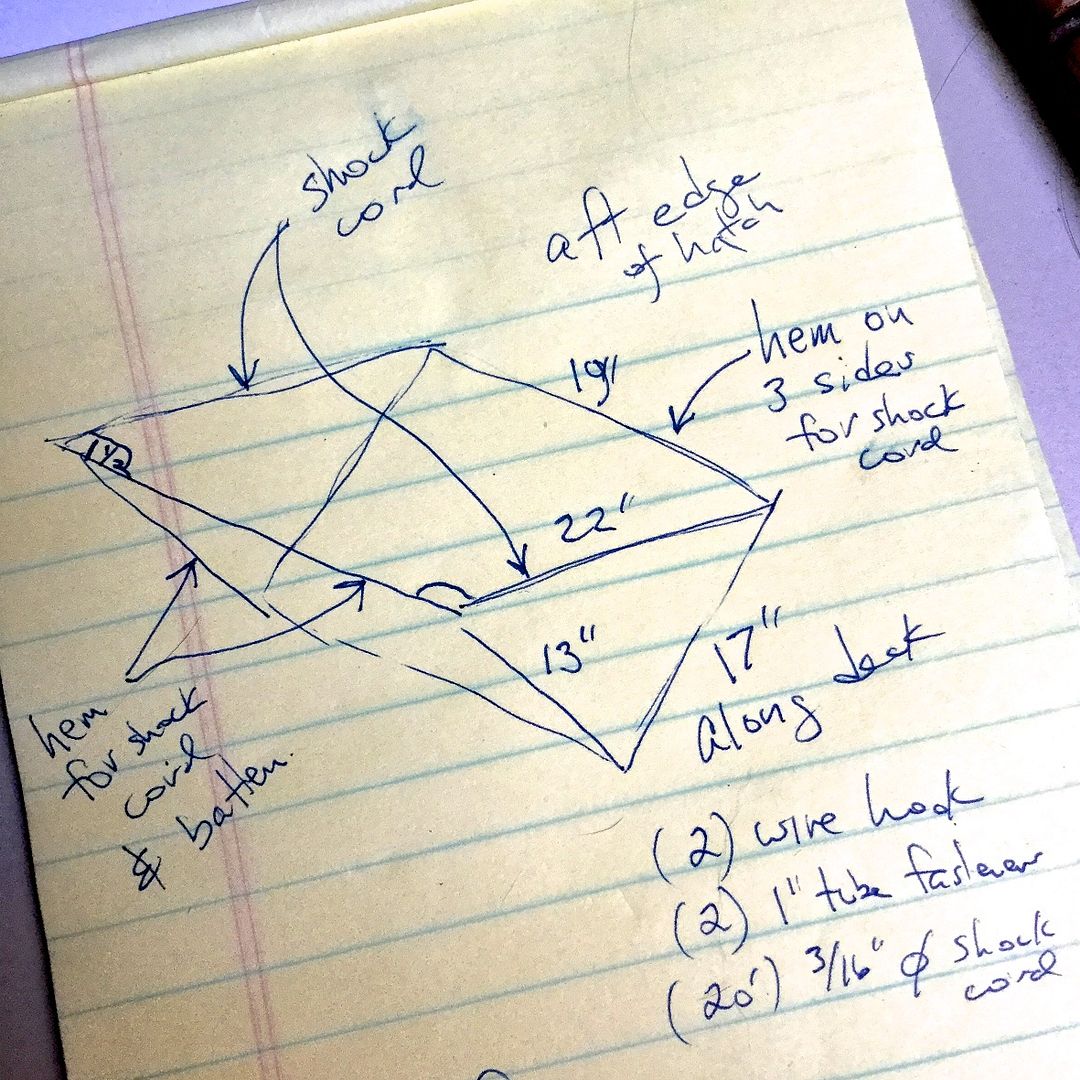 shock
cord
aft edge
of hatch
hem on
3 sides
for shock
cord
19"
1 1/2
22"
13"
17"
along deck
hem
for shock
cord
& batten.
(2) wire hook
(2) 1" tube fastener
(20') 3/16" ϕ shock
cord